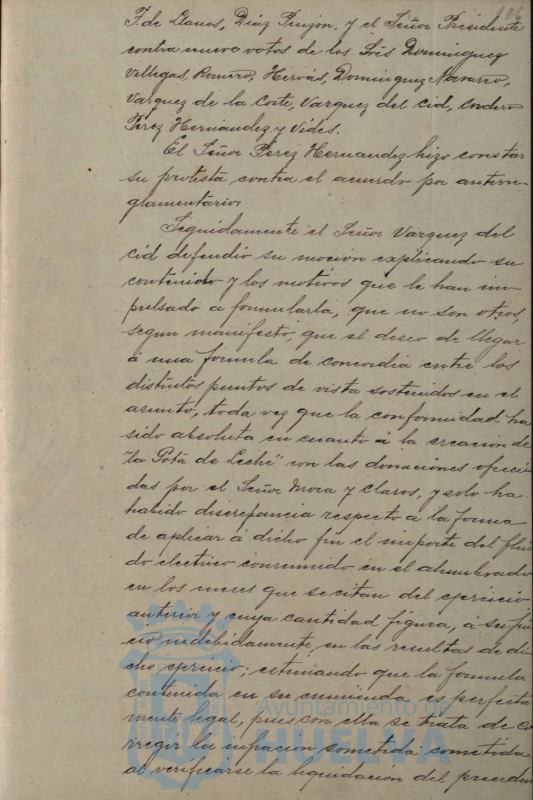 106
F. de Llanos, Díaz Pinzón, y el Señor Presidente
contra nueve votos de los Srés Dominguez
Villegas, Romero, Hervás, Dominguez Navarro,
Vazquez de la Corte, Vazquez del Cid, Cordero
Pérez Hernandez y Vides.
El Señor Pérez Hernandez hizo constar
su protesta contra el acuerdo por antirre-
glamentario.
Seguidamente el Señor Vazquez del
Cid defendió su moción explicando su
contenido y los motivos que le han im-
pulsado a formularla, que no son otros,
segun manifestó, que el deseo de llegar
á una fórmula de concordia entre los
distintos puntos de vista sostenidos en el
asunto, toda vez que la conformidad ha
sido absoluta en cuanto á la creación de
"la Gota de Leche" con las donaciones ofreci-
das por el Señor Mora y Claros, y solo ha
habido discrepancia respecto á la forma
de aplicar á dicho fin el importe del flui-
do electrico consumido en el alumbrado
en los meses que se citan del ejercicio
anterior y cuya cantidad figura, a su jui-
cio indebidamente, en las resultas de di-
cho ejercicio; estimando que la formula
contenida en su enmienda es perfecta
mente legal, pues con ella se trata de co-
rregir la infracion sometida cometida
al verificarse la liquidacion del preceden
Ayuntamiento de
HUELVA